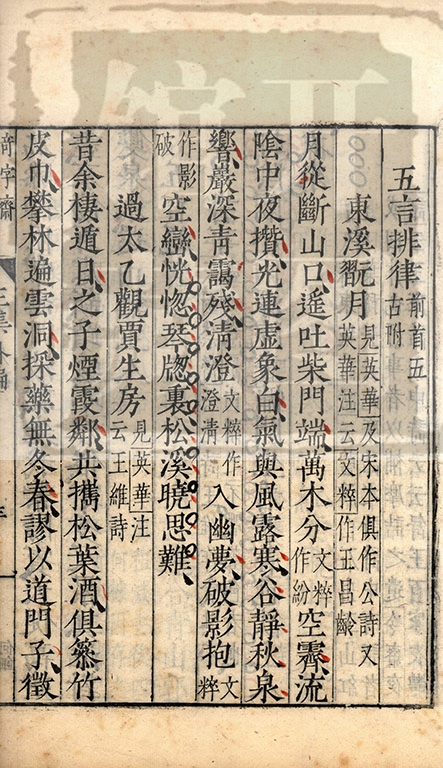 五言排律前首五古附
東溪翫月見英華及宋本俱作公詩又英華注云文粹作王昌齡
月從斷山口遙吐柴門端萬木分文粹作紛空霽流
陰中夜攢光連虛象白氣與風露寒谷靜秋泉
響巖深青靄殘清澄文粹作澄清入幽夢破影抱文粹
作影破空巒恍惚琴牕裏松溪曉思難
過太乙觀賈生房見英華注云王維詩
昔余棲遁日之子煙霞鄰共攜松葉酒俱篸竹
皮巾攀林遍雲洞採藥無冬春謬以道門子徵